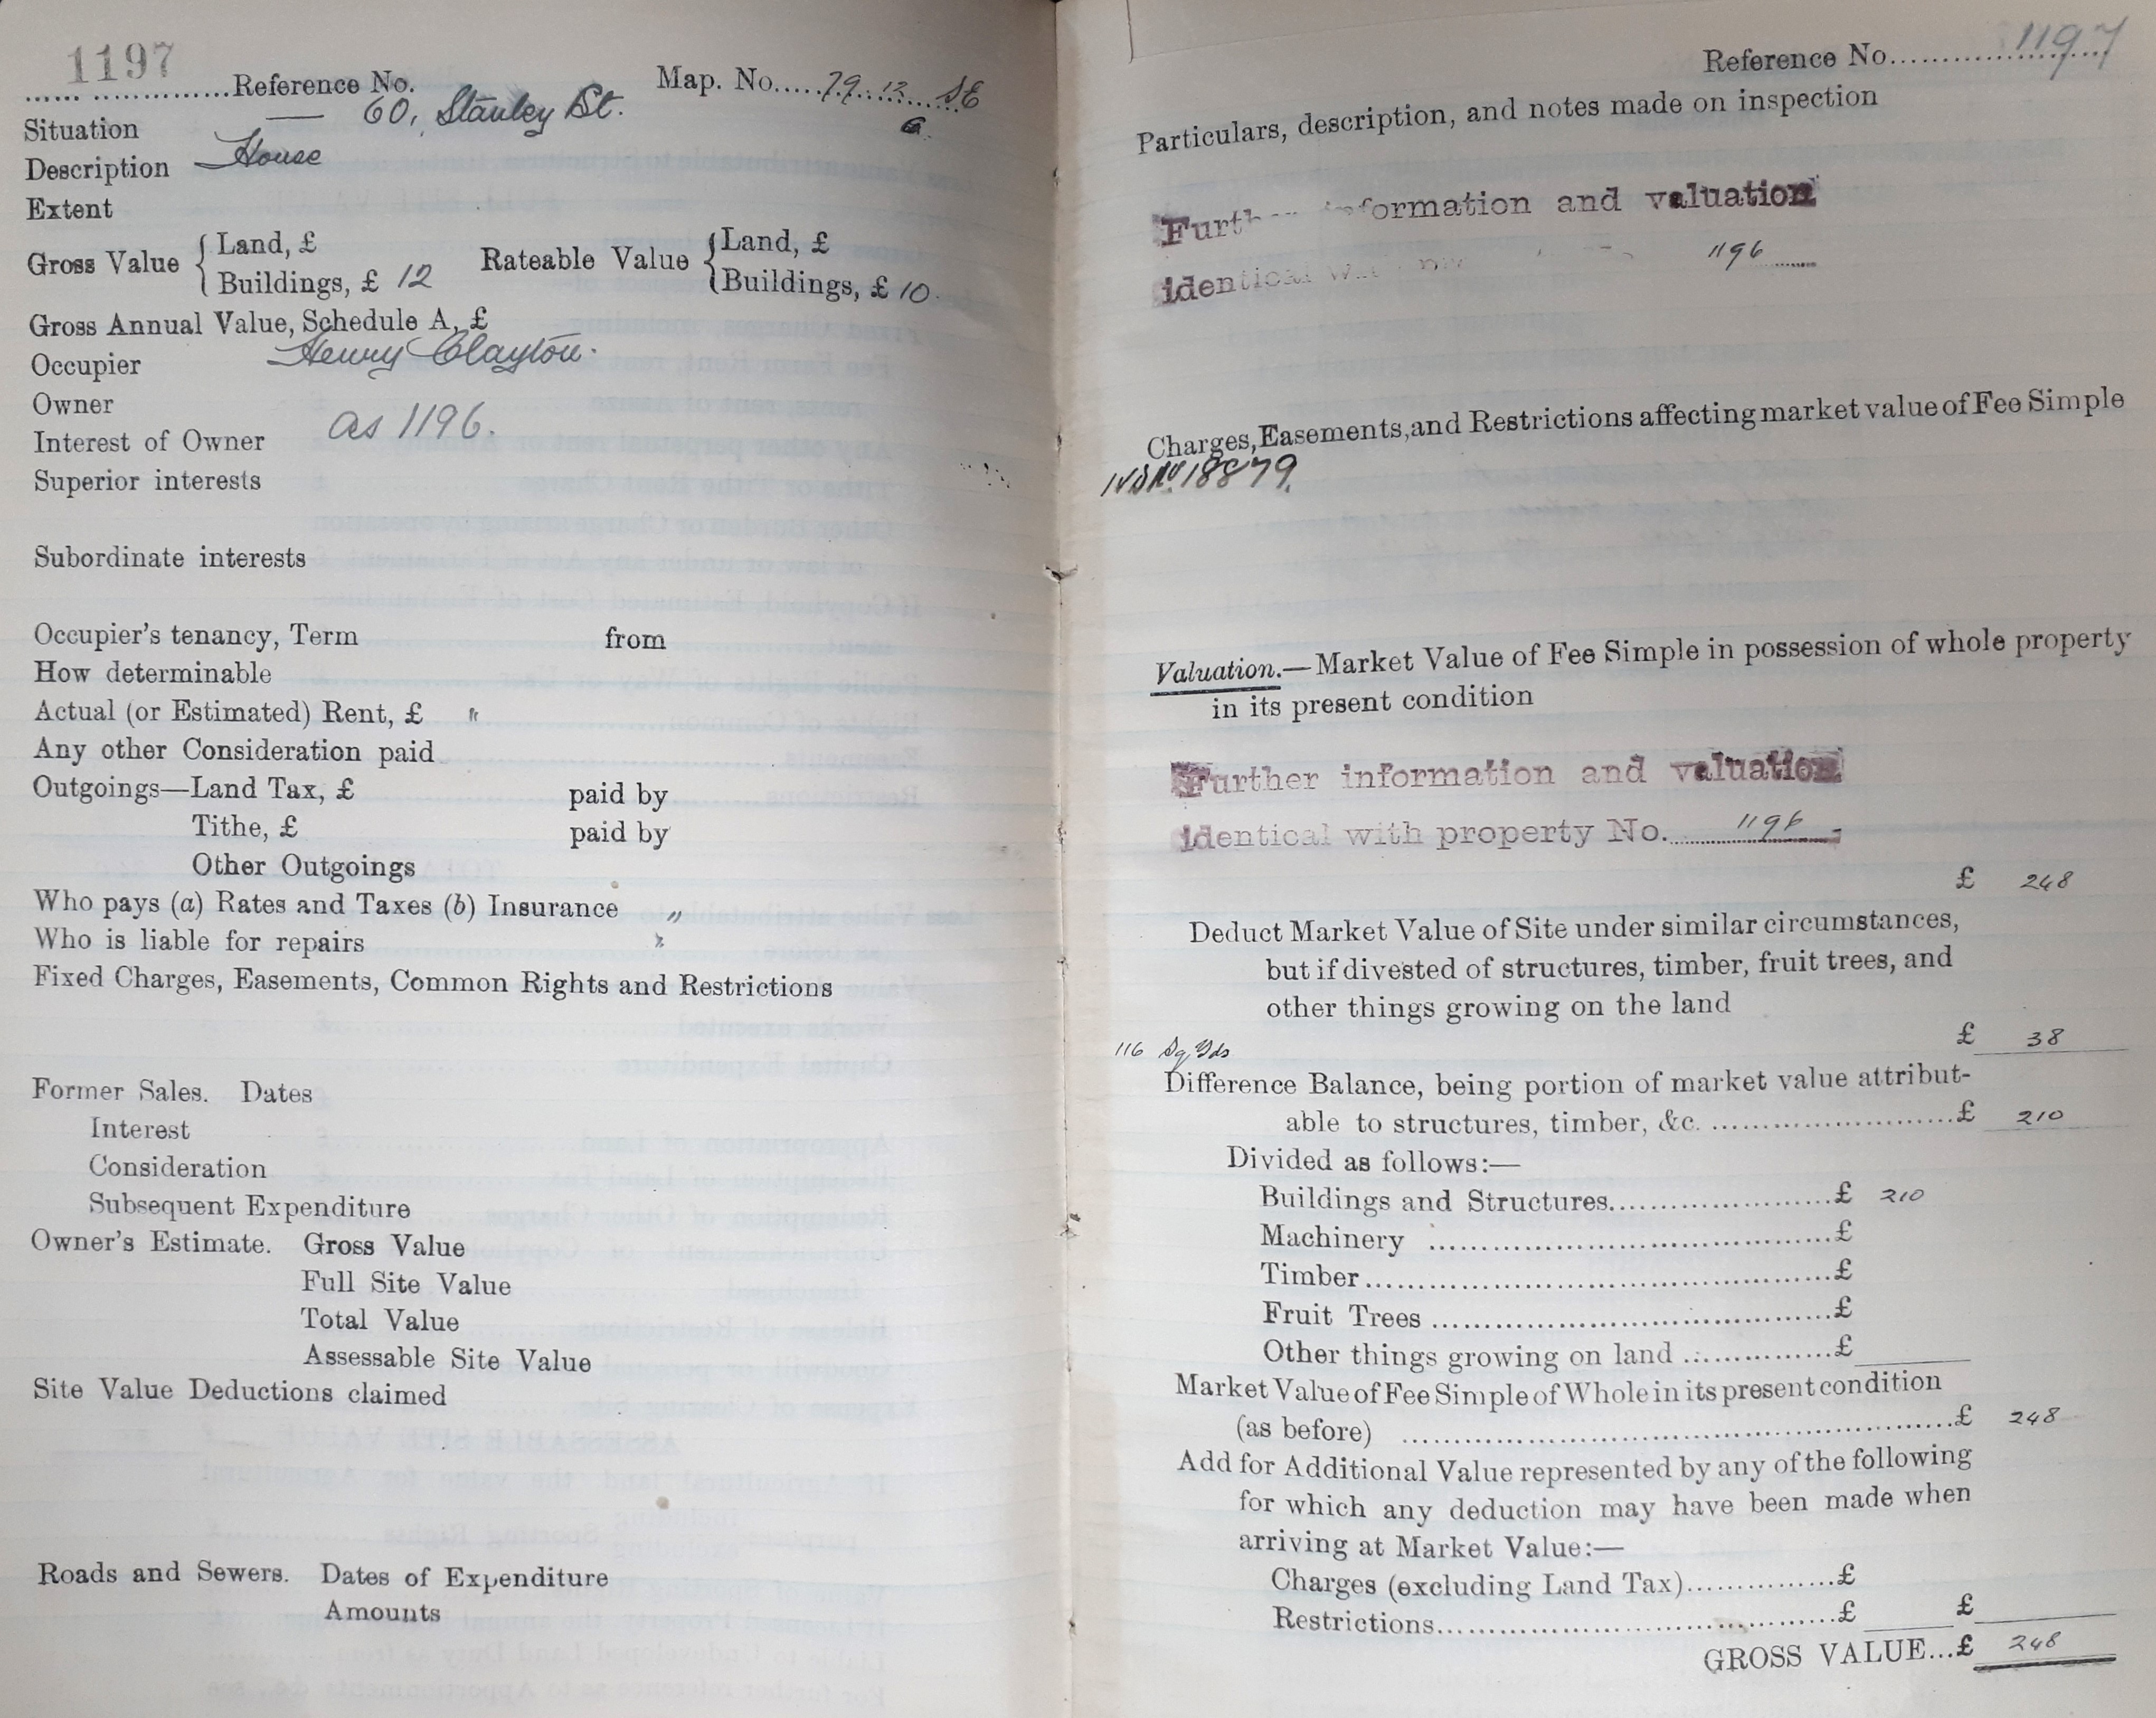 1197
Reference No. Map. No. 79.13 SE
Situation 60, Stanley St. 6
Description House
Extent
Gross Value { Land, £ Rateable Value { Land, £
Buildings, £ 12 Buildings, £ 10.
Gross Annual Value, Schedule A, £
Occupier Henry Clayton.
Owner
Interest of Owner as 1196.
Superior interests
Subordinate interests
Occupier's tenancy, Term from
How determinable
Actual (or Estimated) Rent, £ "
Any other Consideration paid
Outgoings—Land Tax, £ paid by
Tithe, £ paid by
Other Outgoings
Who pays (a) Rates and Taxes (b) Insurance "
Who is liable for repairs "
Fixed Charges, Easements, Common Rights and Restrictions
Former Sales. Dates
Interest
Consideration
Subsequent Expenditure
Owner's Estimate. Gross Value
Full Site Value
Total Value
Assessable Site Value
Site Value Deductions claimed
Roads and Sewers. Dates of Expenditure
Amounts
Reference No. 1197
Particulars, description, and notes made on inspection
Further information and valuation
identical 1196
Charges, Easements, and Restrictions affecting market value of Fee Simple
18879.
Valuation.—Market Value of Fee Simple in possession of whole property
in its present condition
Further information and valuation
identical with property No. 1196
£ 248
Deduct Market Value of Site under similar circumstances,
but if divested of structures, timber, fruit trees, and
other things growing on the land
116 Sq Yds £ 38
Difference Balance, being portion of market value attribut-
able to structures, timber, &c. £ 210
Divided as follows:—
Buildings and Structures £ 210
Machinery £
Timber £
Fruit Trees £
Other things growing on land £
Market Value of Fee Simple of Whole in its present condition
(as before) £ 248
Add for Additional Value represented by any of the following
for which any deduction may have been made when
arriving at Market Value:—
Charges (excluding Land Tax) £
Restrictions £ £
GROSS VALUE...£ 248